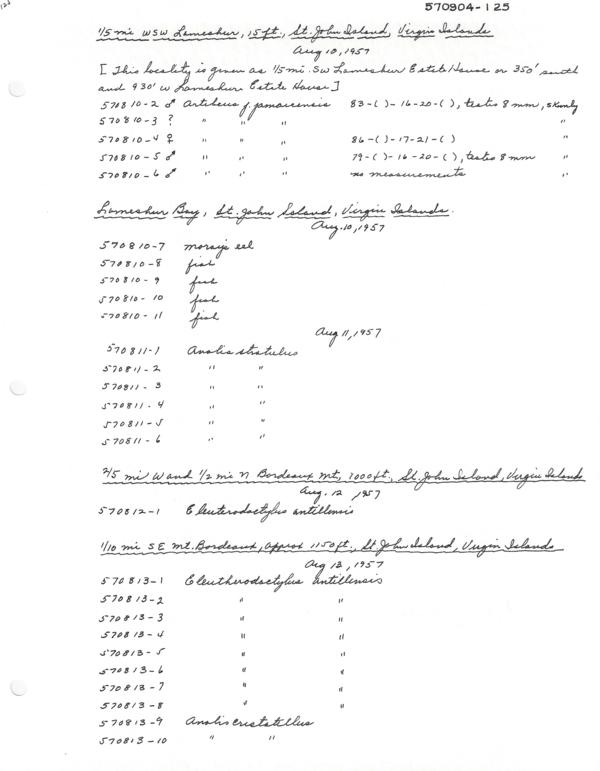 123
570904-125
1/5 mi WSW Lameshur, 15 ft., St. John Island, Virgin Islands
Aug 10, 1957
[This locality is given as 1/5 mi. SW Lameshur Estate House or 350' south
and 930' W Lameshur Estate House]
570810-2 ♂ Artibeus j. jamaicensis 83-( )-16-20-( ), testis 8 mm, skin only
570810-3 ? " " " "
570810-4 ♀ " " " 86-( )-17-21-( ) "
570810-5 ♂ " " " 79-( )-16-20-( ), testis 8 mm "
570810-6 ♂ " " " no measurements "
Lameshur Bay, St. John Island, Virgin Islands.
Aug. 10, 1957
570810-7 moray eel
570810-8 fish
570810-9 fish
570810-10 fish
570810-11 fish
Aug 11, 1957
570811-1 Anolis stratulus
570811-2 " "
570811-3 " "
570811-4 " "
570811-5 " "
570811-6 " "
2/5 mi W and 1/2 mi N Bordeaux Mt, 1000 ft., St. John Island, Virgin Islands
Aug. 12, 1957
570812-1 Eleuterodactylus antillensis
1/10 mi SE Mt. Bordeaux, approx 1150 ft., St John Island, Virgin Islands
Aug 13, 1957
570813-1 Eleutherodactylus antillensis
570813-2 " "
570813-3 " "
570813-4 " "
570813-5 " "
570813-6 " "
570813-7 " "
570813-8 " "
570813-9 Anolis cristatellus
570813-10 " "